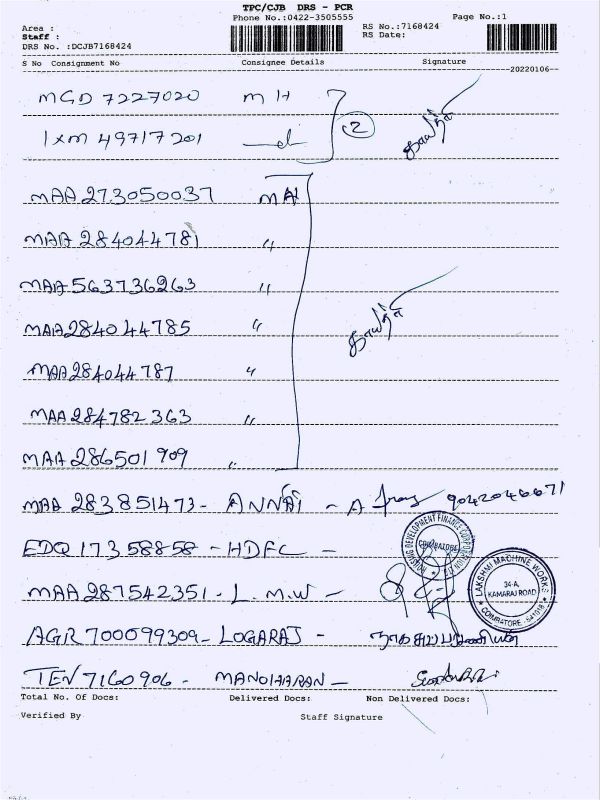 TPC/CJB DRS - PCR
Phone No.:0422-3505555 Page No.:1
Area :
Staff :
RS No.:7168424
RS Date:
DRS No. :DCJB7168424
S No Consignment No Consignee Details Signature
20220106
MGD 7227020 MH 2
IXM 49717201
MAA 273050037 MAI
MAA 284044781 "
MAA 563736263 "
MAA 284044785 "
MAA 284044787 "
MAA 284782363 "
MAA 286501909 "
MAA 283851473 - ANNAI - A 9042046671
EDQ 17358858 - HDFC -
HOUSING DEVELOPMENT FINANCE CORPORATION LTD
COIMBATORE
MAA 287542351 - L.M.W -
LAKSHMI MACHINE WORKS
34-A,
KAMARAJ ROAD
COIMBATORE - 641018
AGR 700099309 - LOGARAJ -
TEN 7160906 - MANOHARAN -
Total No. Of Docs: Delivered Docs: Non Delivered Docs:
Verified By Staff Signature